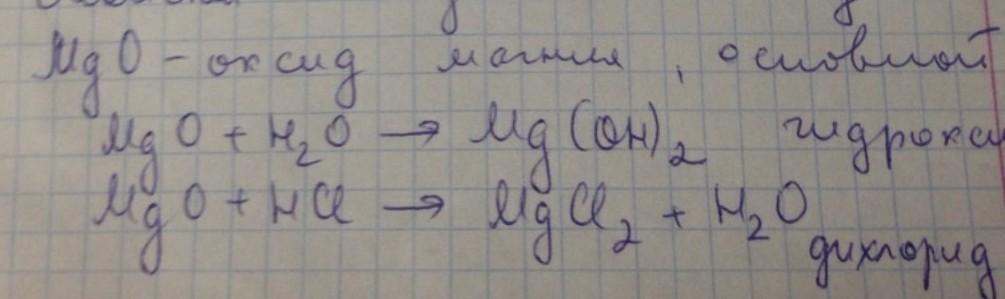 MgO - оксид магния, основной
MgO + H₂O → Mg(OH)₂ гидрокси
MgO + HCl → MgCl₂ + H₂O
дихлорид